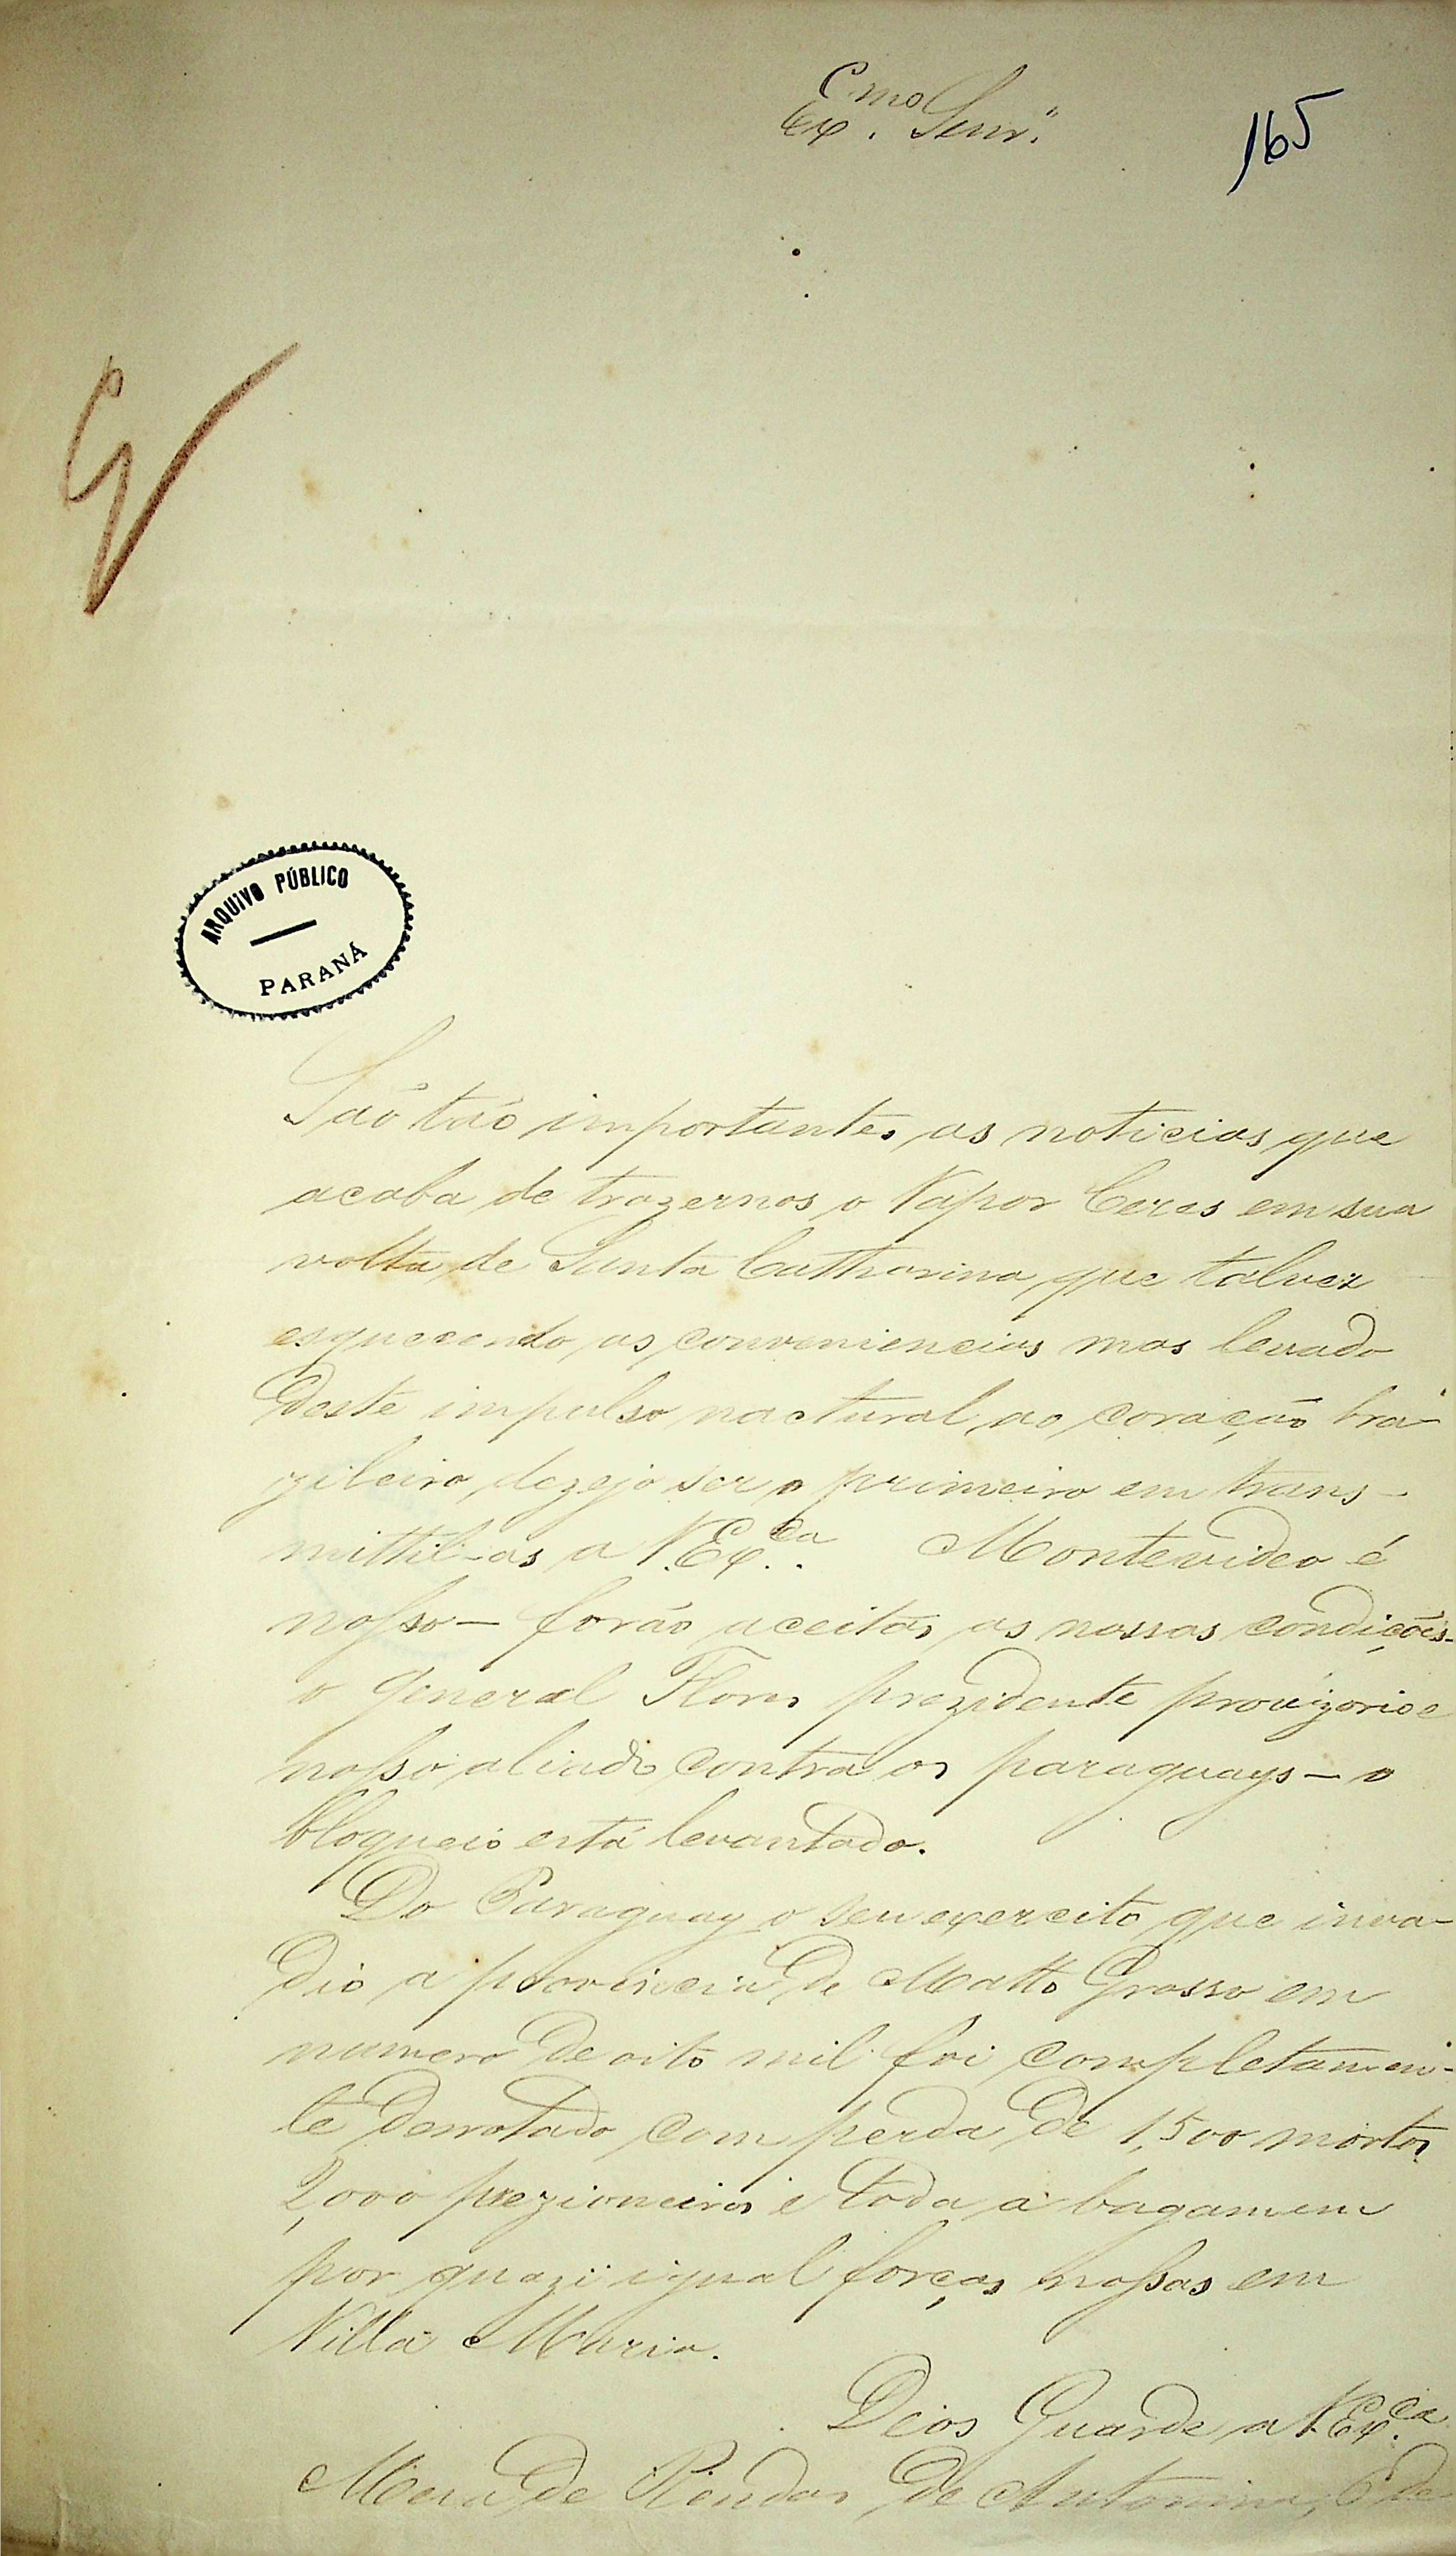 Ex.mo Senr.
165
ARQUIVO PÚBLICO
PARANÁ
São tão importantes as noticias que
acaba de trazernos o Vapor Ceres em sua
volta de Santa Catharina que talvez
esquecendo as conveniencias mas levado
deste impulso nactural ao coração bra-
zileiro, dezejo ser o primeiro em trans-
mittil-as a V. Ex.ca Montevideo é
nosso— forão aceitas as nossas condições-
o General Flores prezidente provizorio e
nosso aliado contra os paraguays— o
bloqueio está levantado.
Do Paraguay o seu exercito que inva-
dio a provincia de Matto Grosso em
numero de oito mil foi completamen-
te derrotado com perda de 1,500 mortos
2,000 prezioneiros e toda a bagamem
por quazi igual forças nossas em
Villa Maria.
Deos Guarde a V. Ex.ca
Meza de Rendas de Antonina, 6 de